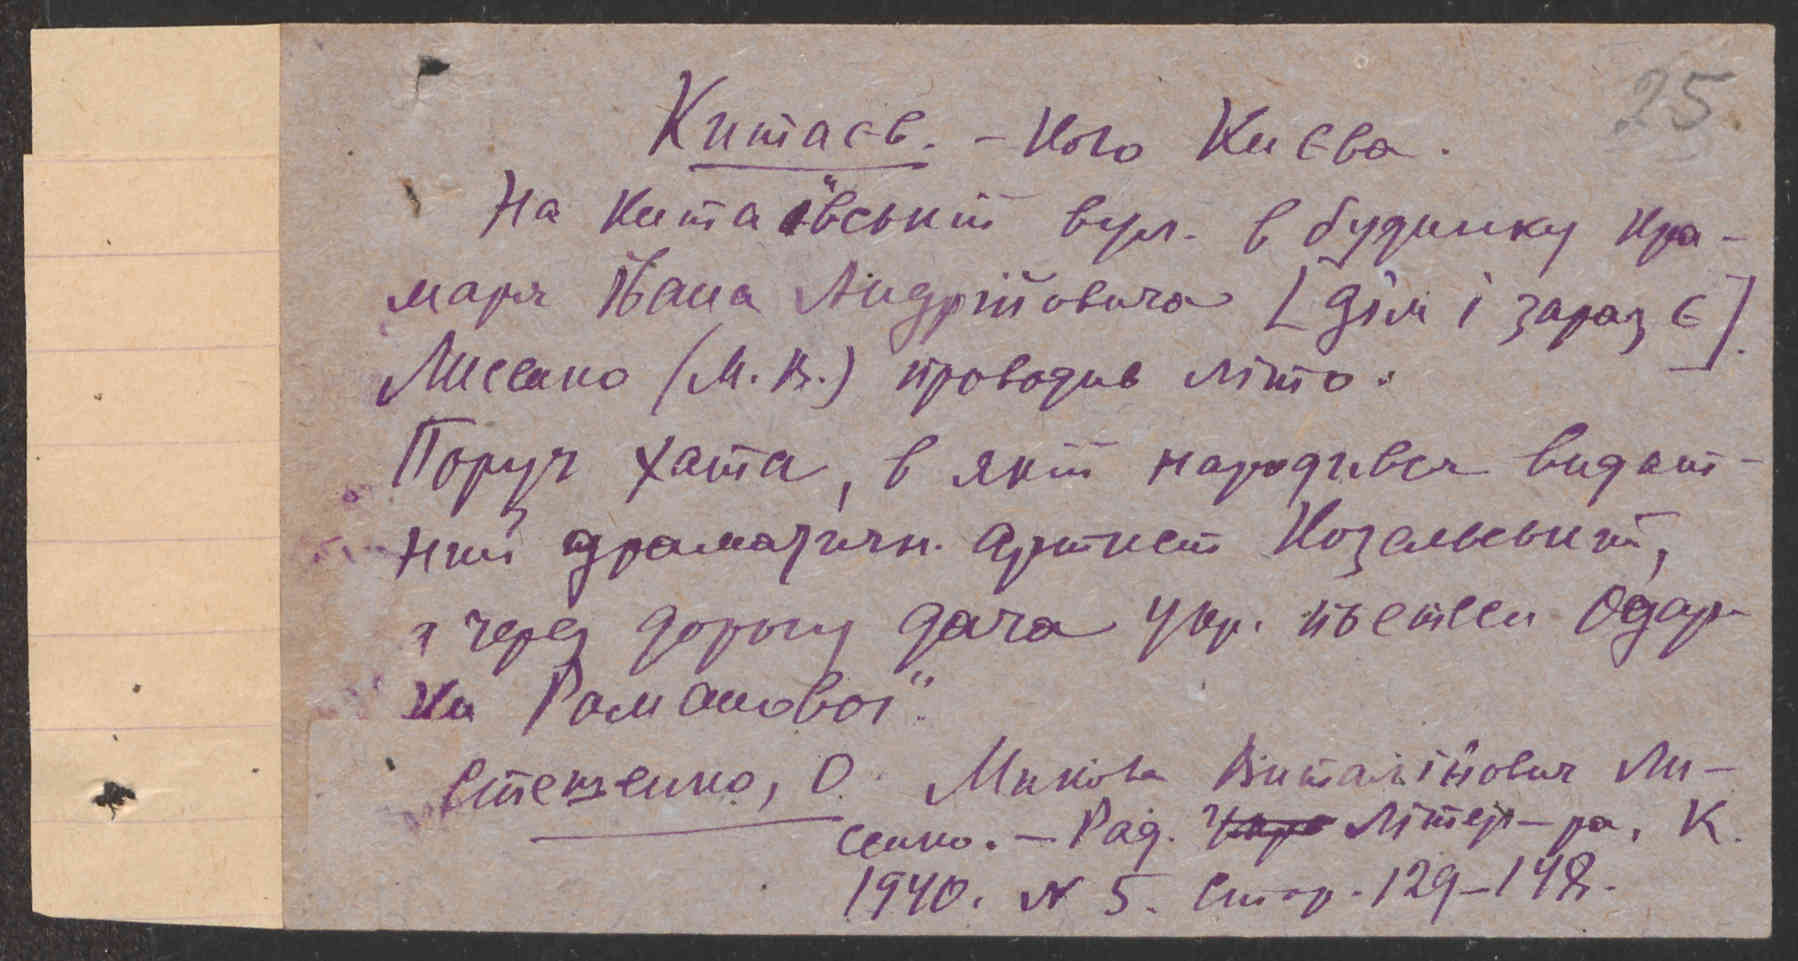 25.
Китаєв. – коло Києва.
"На Китаївській вул. в будинку кра-
маря Івана Андрійовича [дім і зараз є].
Лисенко (М. В.) проводив літо.
Поруч хата, в якій народився видат-
ний драматичн. артист Козельський,
а через дорогу дача укр. поетеси Одар-
ки Романової".
Стешенко, О. Микола Виталійович Ли-
сенко. – Рад. Літер-ра, К.
1940. N 5. Стор. 129–148.